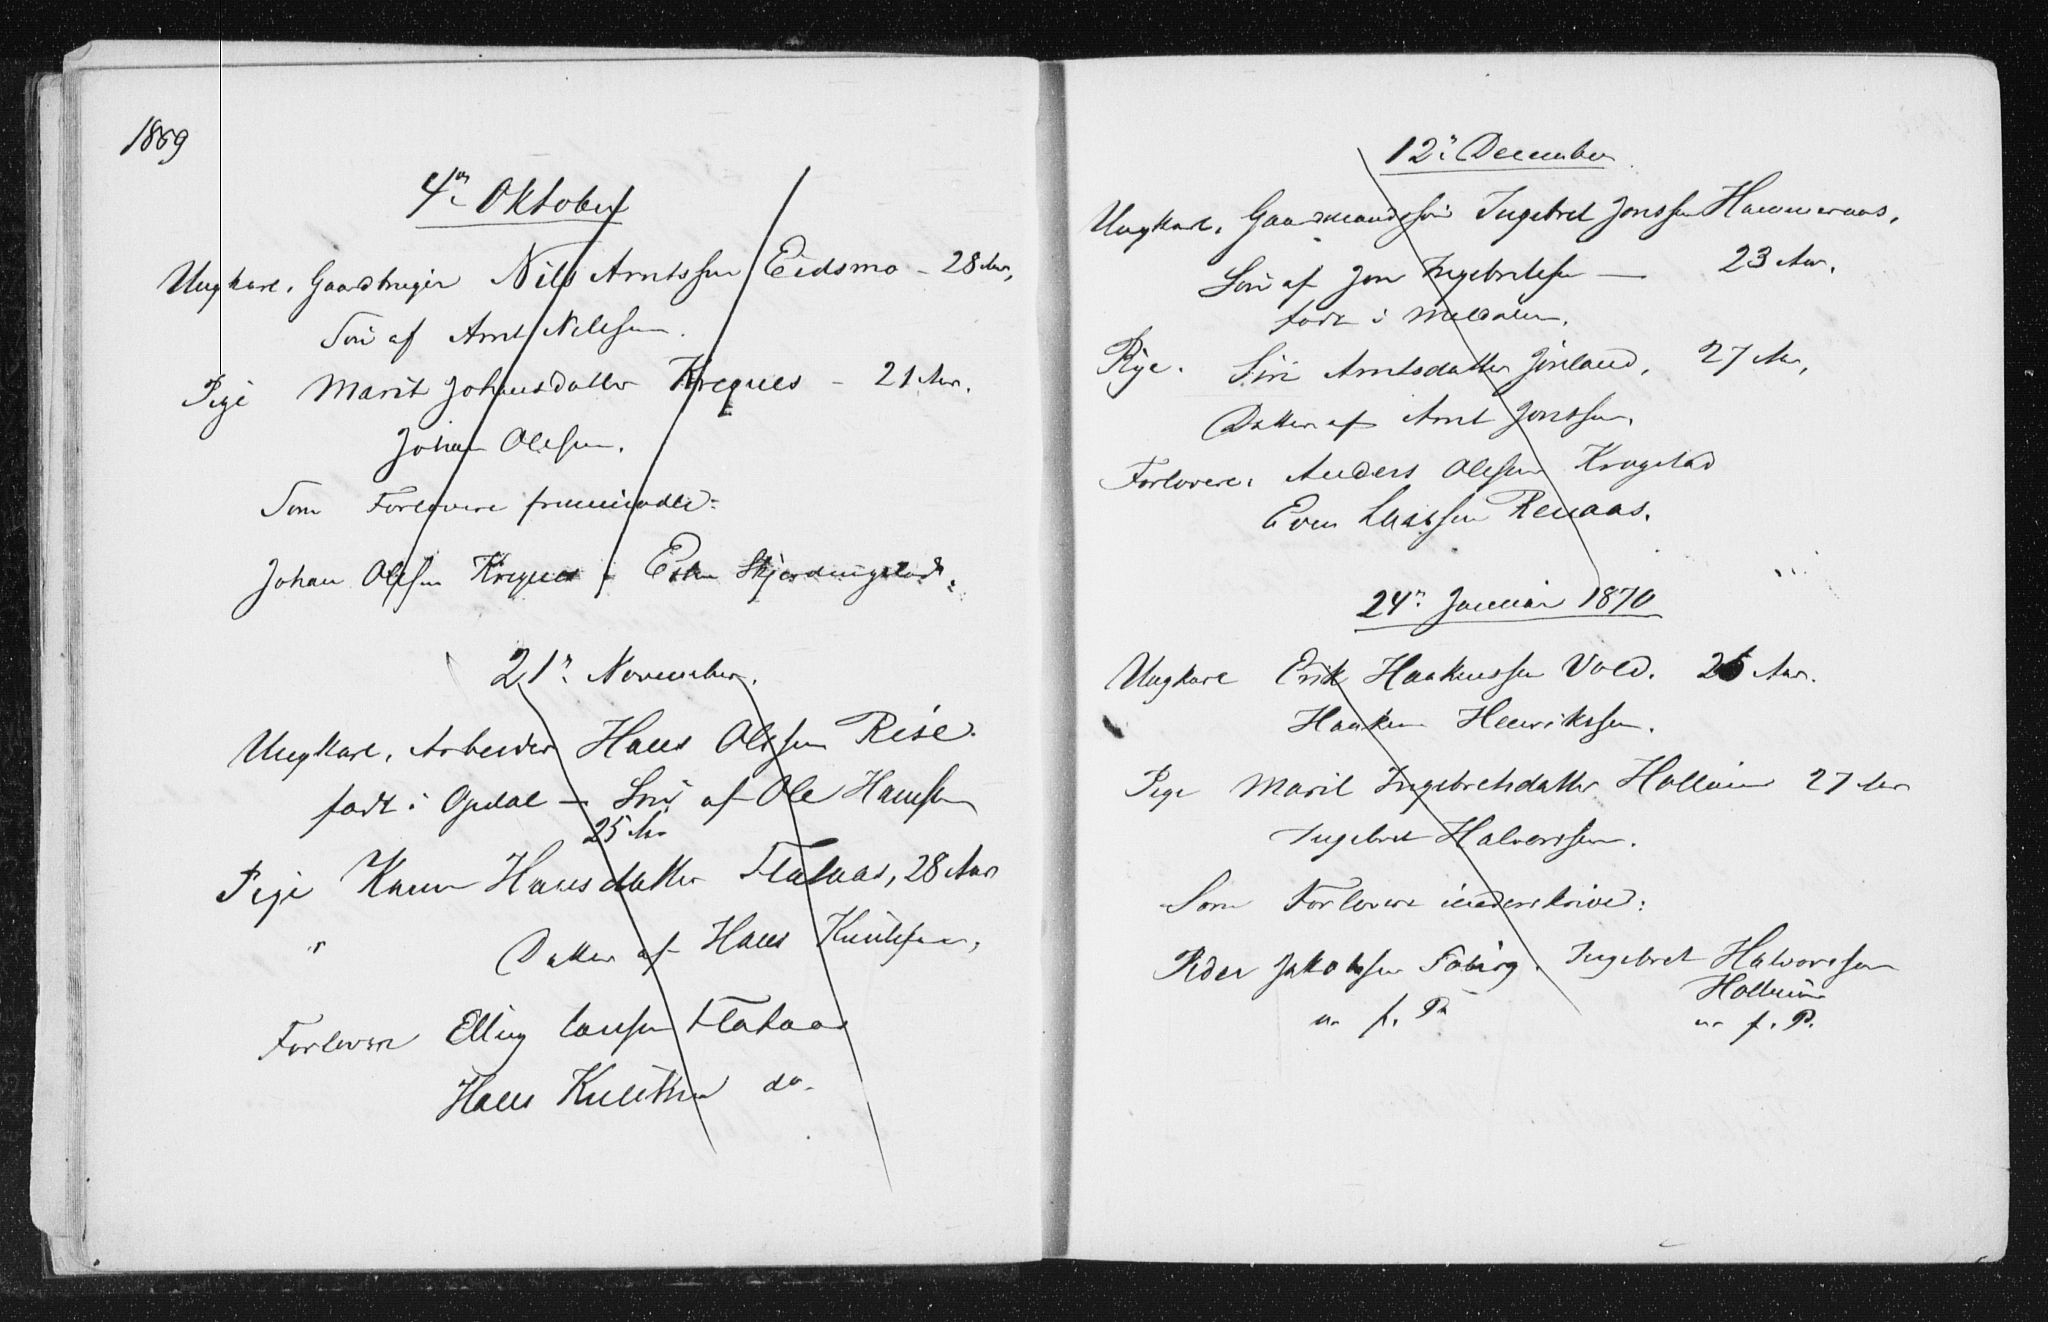 1869
4de Oktober
Ungkarl, Gaardbruger Nils Arntssen Eidsmo - 28 Aar,
Søn af Arnt Nilssen.
Pige Marit Johansdatter Kregnes - 21 Aar.
Johan Olssen.
Som Forlovere
Johan Olssen Kregnes Skjerdingstad.
21de November.
Ungkarl, Arbeider Hans Olssen Rise.
født i Opdal - Søn af Ole Hanssen
25 Aar
Pige Karen Hansdatter Flataas, 28 Aar
" Datter af Hans Knudsen,
Forlovere Elling Flataas
Hans do.
12te December
Ungkarl, Gaardmandssøn Ingebret Jonssen Hammeraas,
Søn af Jon Ingebretssen — 23 Aar.
født i Meldalen.
Pige. Siri Arntsdatter 27 Aar,
Datter af Arnt Jonssen.
Forlovere: Anders Olssen Krogstad
Even Larssen Renaas.
24de Januar 1870
Ungkarl Erik Haakenssen Vold. Aar.
Haaken Henrikssen.
Pige Marit Ingebretsdatter Hollum 27 Aar
Ingebret Halvorssen.
Som Forlovere underskrive:
Peder Jakobssen Ingebret Halvorssen
Hollum
m. f. P. m. f. P.